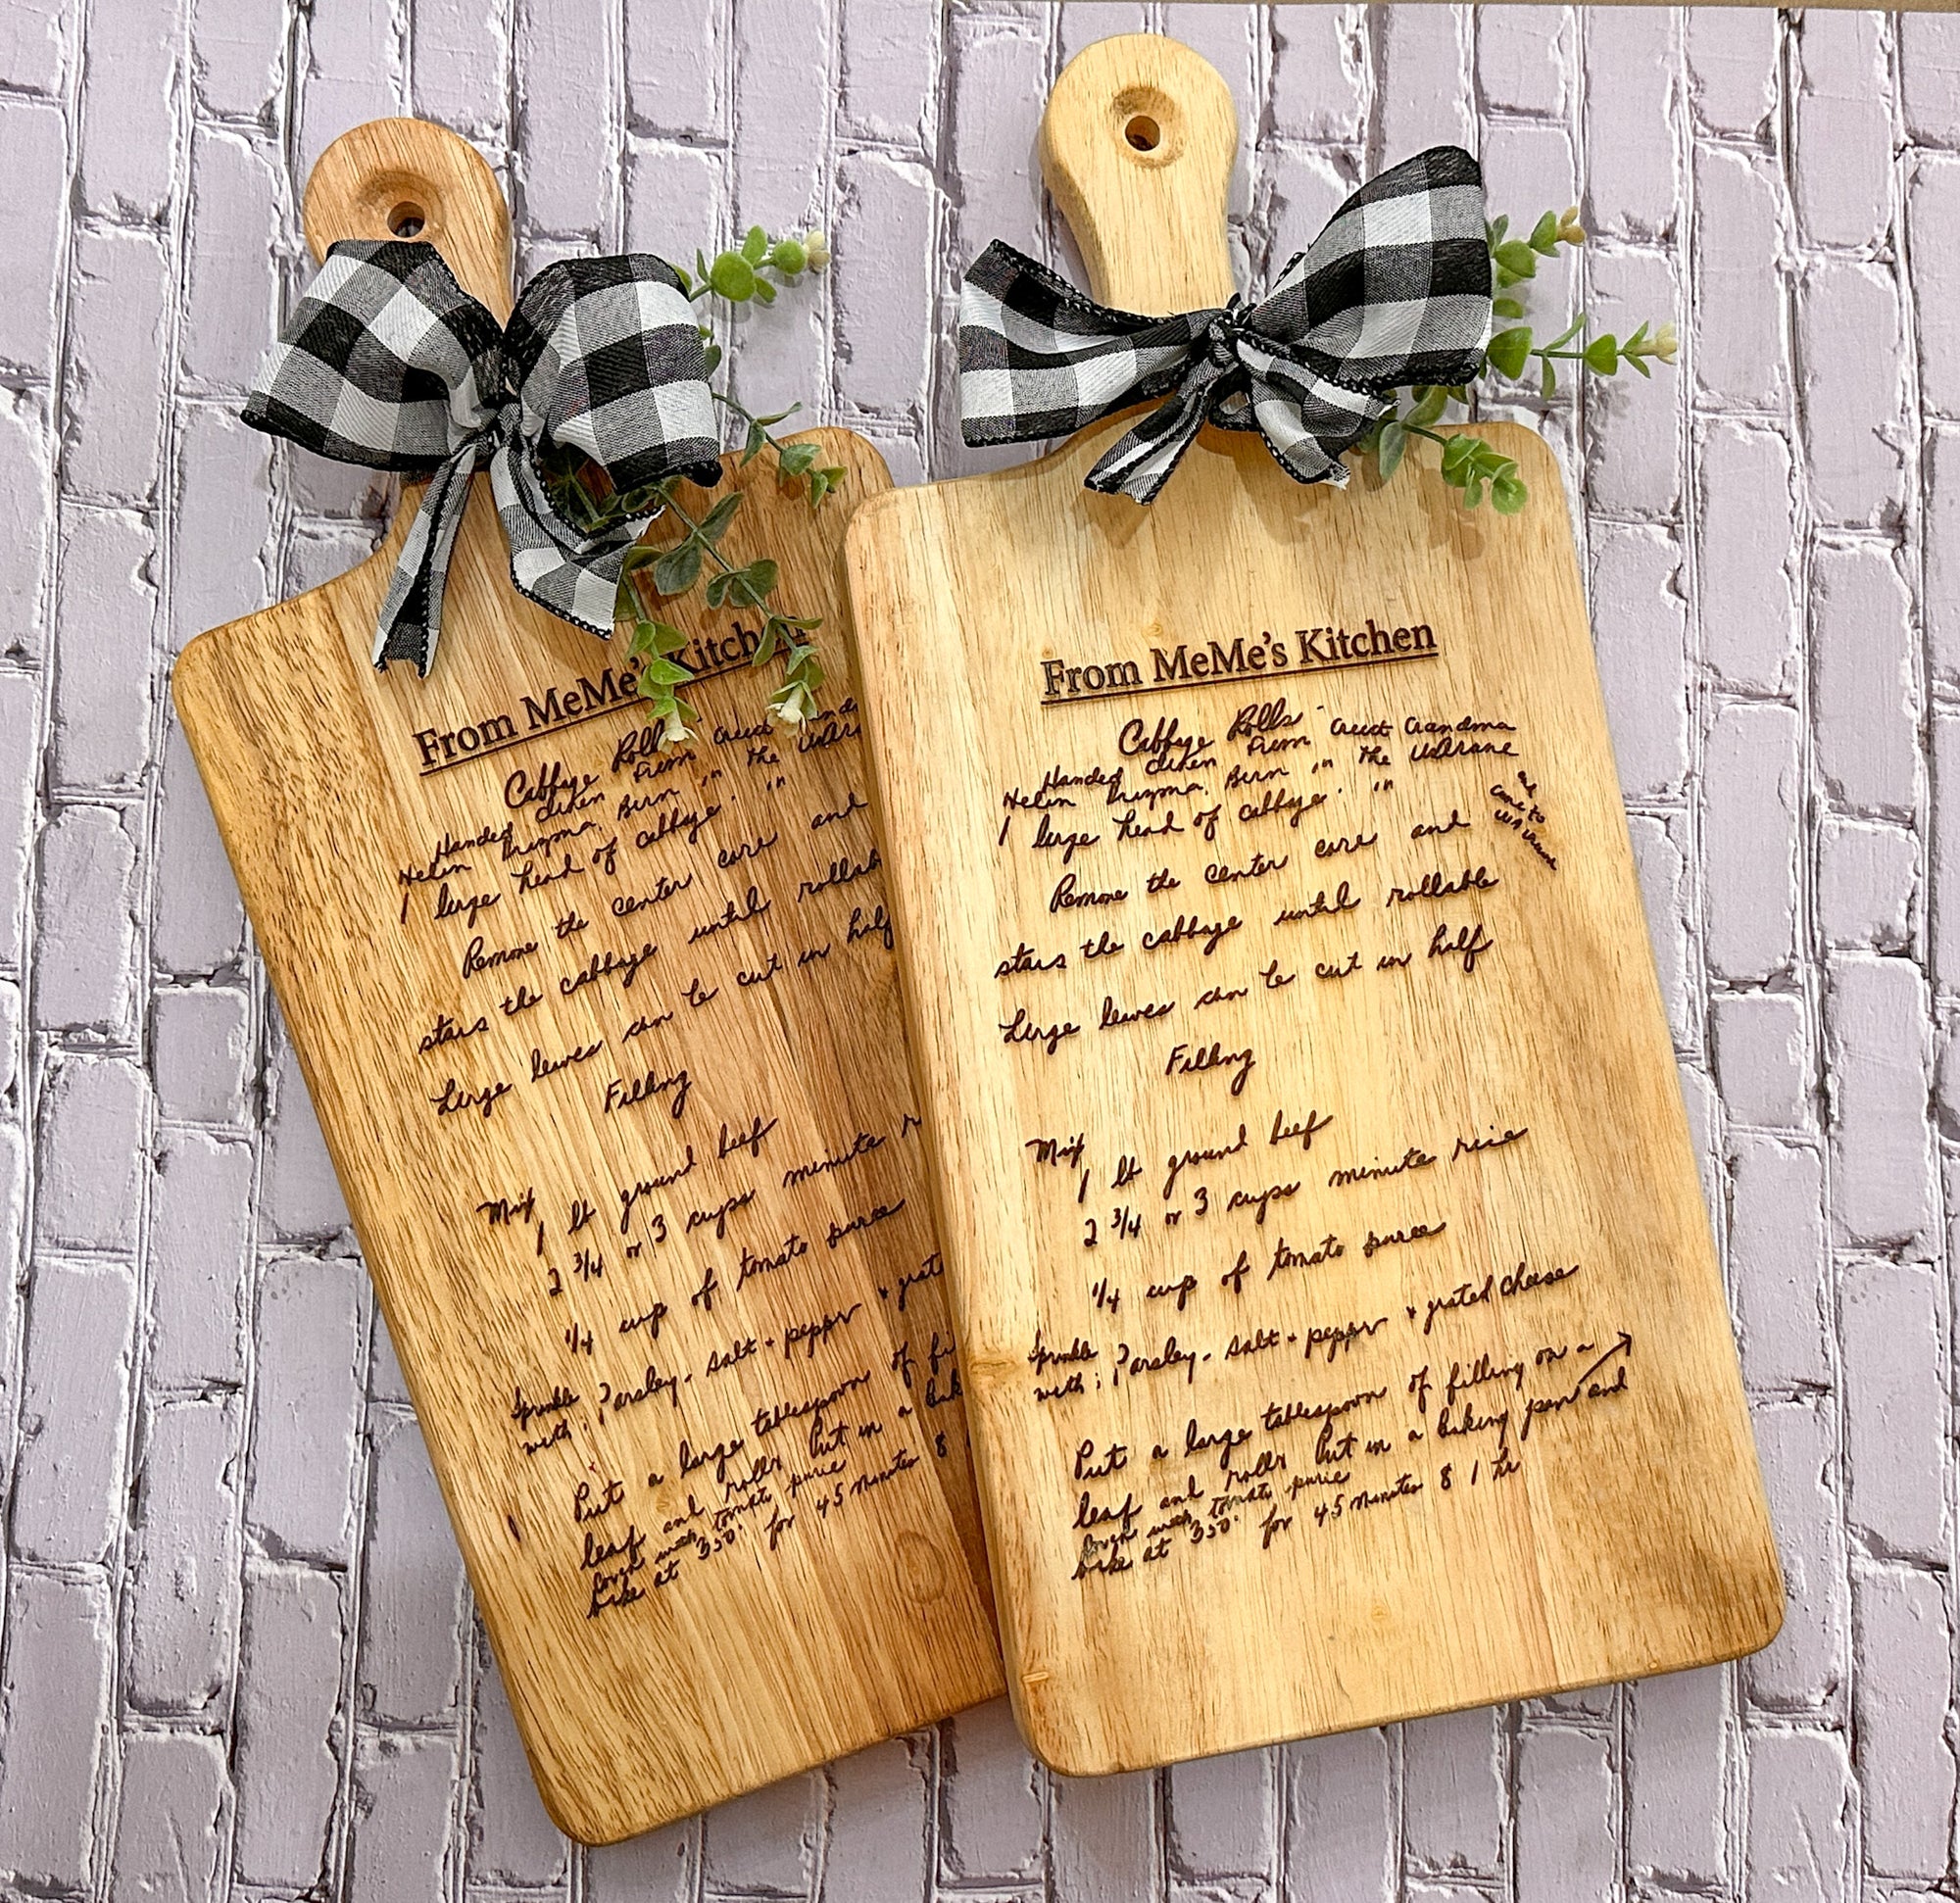 From MeMe's Kitchen
Cabbage Rolls
Handed down From Great Grandma
Helen Born in the Ukraine
1 large head of cabbage. in
and
came to
Remove the center core and
steam the cabbage until rollable
Large leaves can be cut in half
Filling
Mix
1 lb ground beef
2 3/4 or 3 cups minute rice
1/4 cup of tomato puree
Sprinkle
with: Parsley - salt + pepper + grated cheese
Put a large tablespoon of filling on a
leaf and roll. Put in a baking pan and
Cover with tomato puree
bake at 350° for 45 minutes & 1 hr
From MeMe's Kitchen
Cabbage Rolls
Handed down From Great
Helen Born in the
1 large head of cabbage. in
Remove the center core and
steam the cabbage until
Large leaves can be cut in half
Filling
Mix
1 lb ground beef
2 3/4 or 3 cups minute
1/4 cup of tomato puree
Sprinkle
with: Parsley - salt + pepper +
Put a large tablespoon of
leaf and roll. Put in a
Cover with tomato puree
bake at 350° for 45 minutes &